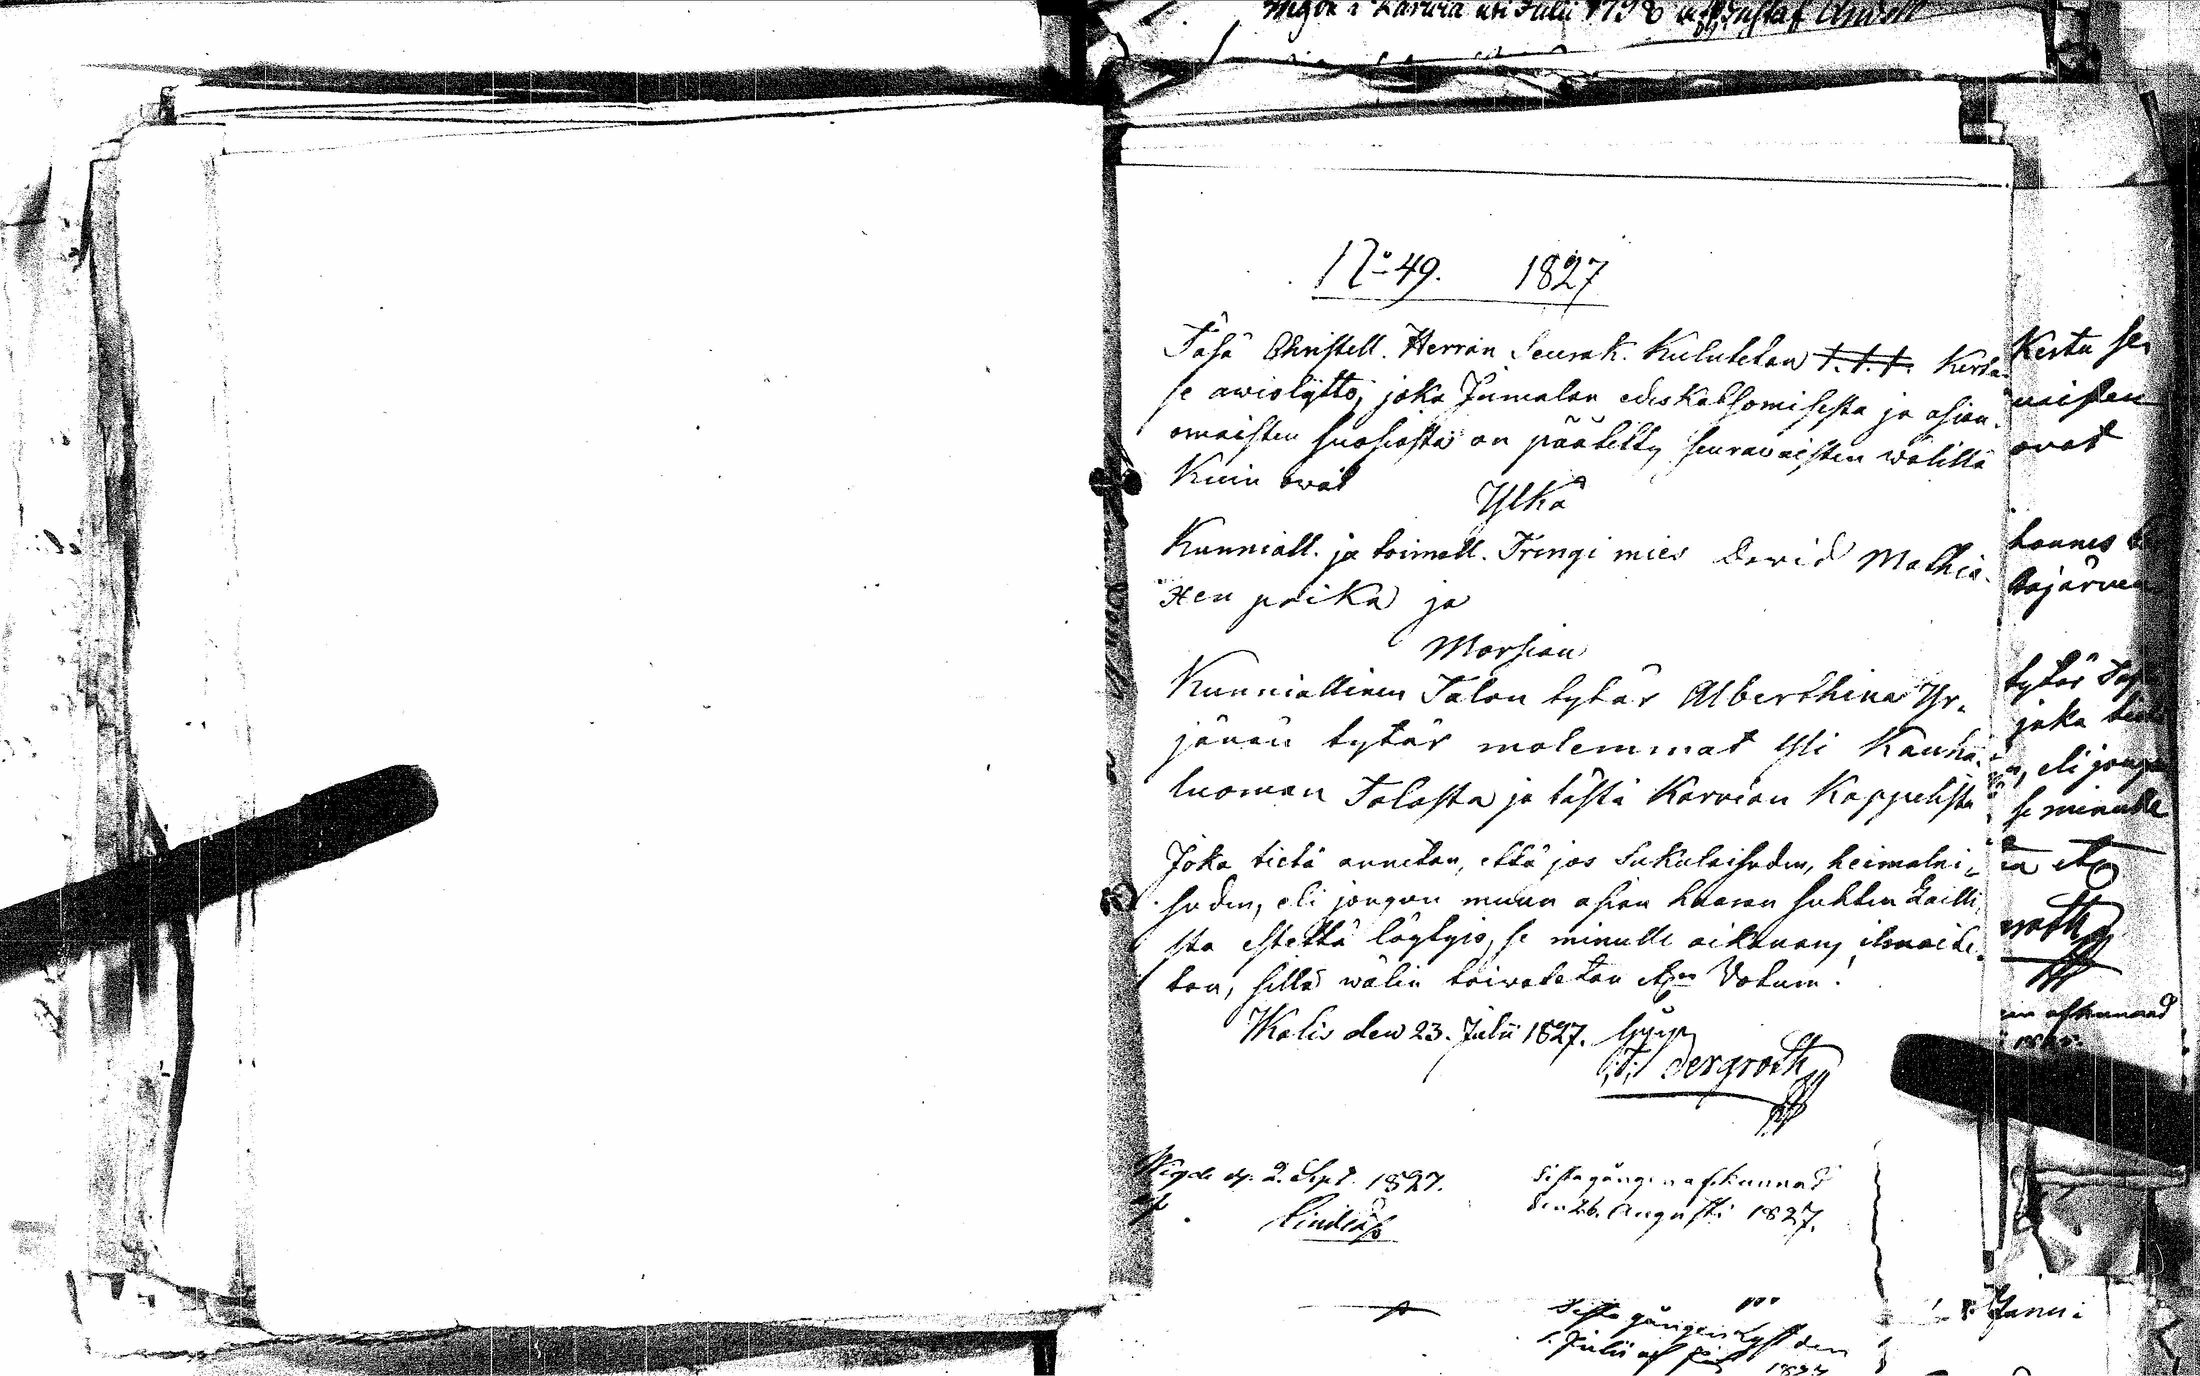 Wigde i Karvia uti Julii 1798 af Gustaf
No 49. 1827
Täsä Christell. Herran Seurak. Kulutetan t.t.t. Kerta
se awioläyttö, joka Jumalan edeskatsomisesta ja asian
omaisten suosiosta on päätetty seuravaisten wälillä
Kuin ovat
Ylkä
Kunniall. ja toimell. Trengi mies David Mathia-
xen poika ja
Morsian
Kunniallinen Talon tytär Alberthina Yr-
jänän tytär molemmat Yli Kauha-
luoman Talosta ja tästä Karvian Kappelista
Joka tietä annetan, että jos Sukulaisuden, heimolai-
suden, eli jongun muun asian haaran suhten Lailli-
sta estettä löytyis, se minulle aikanans ilmoite-
tan, sillä wälin toivotetan etc Votum!
IKalis den 23. Julii 1827.
Bergroth
Wigde d. 2. Sept. 1827.
af Lindsås
Sista gången afkunnad
den 26. Augusti 1827.
Sista gången Lyst den
1. Julii af
Kerta se
naisten
ovat
hannes
tajärven
tytär
joka
eli jongun
se minulle
etc
afkunnad
Junii